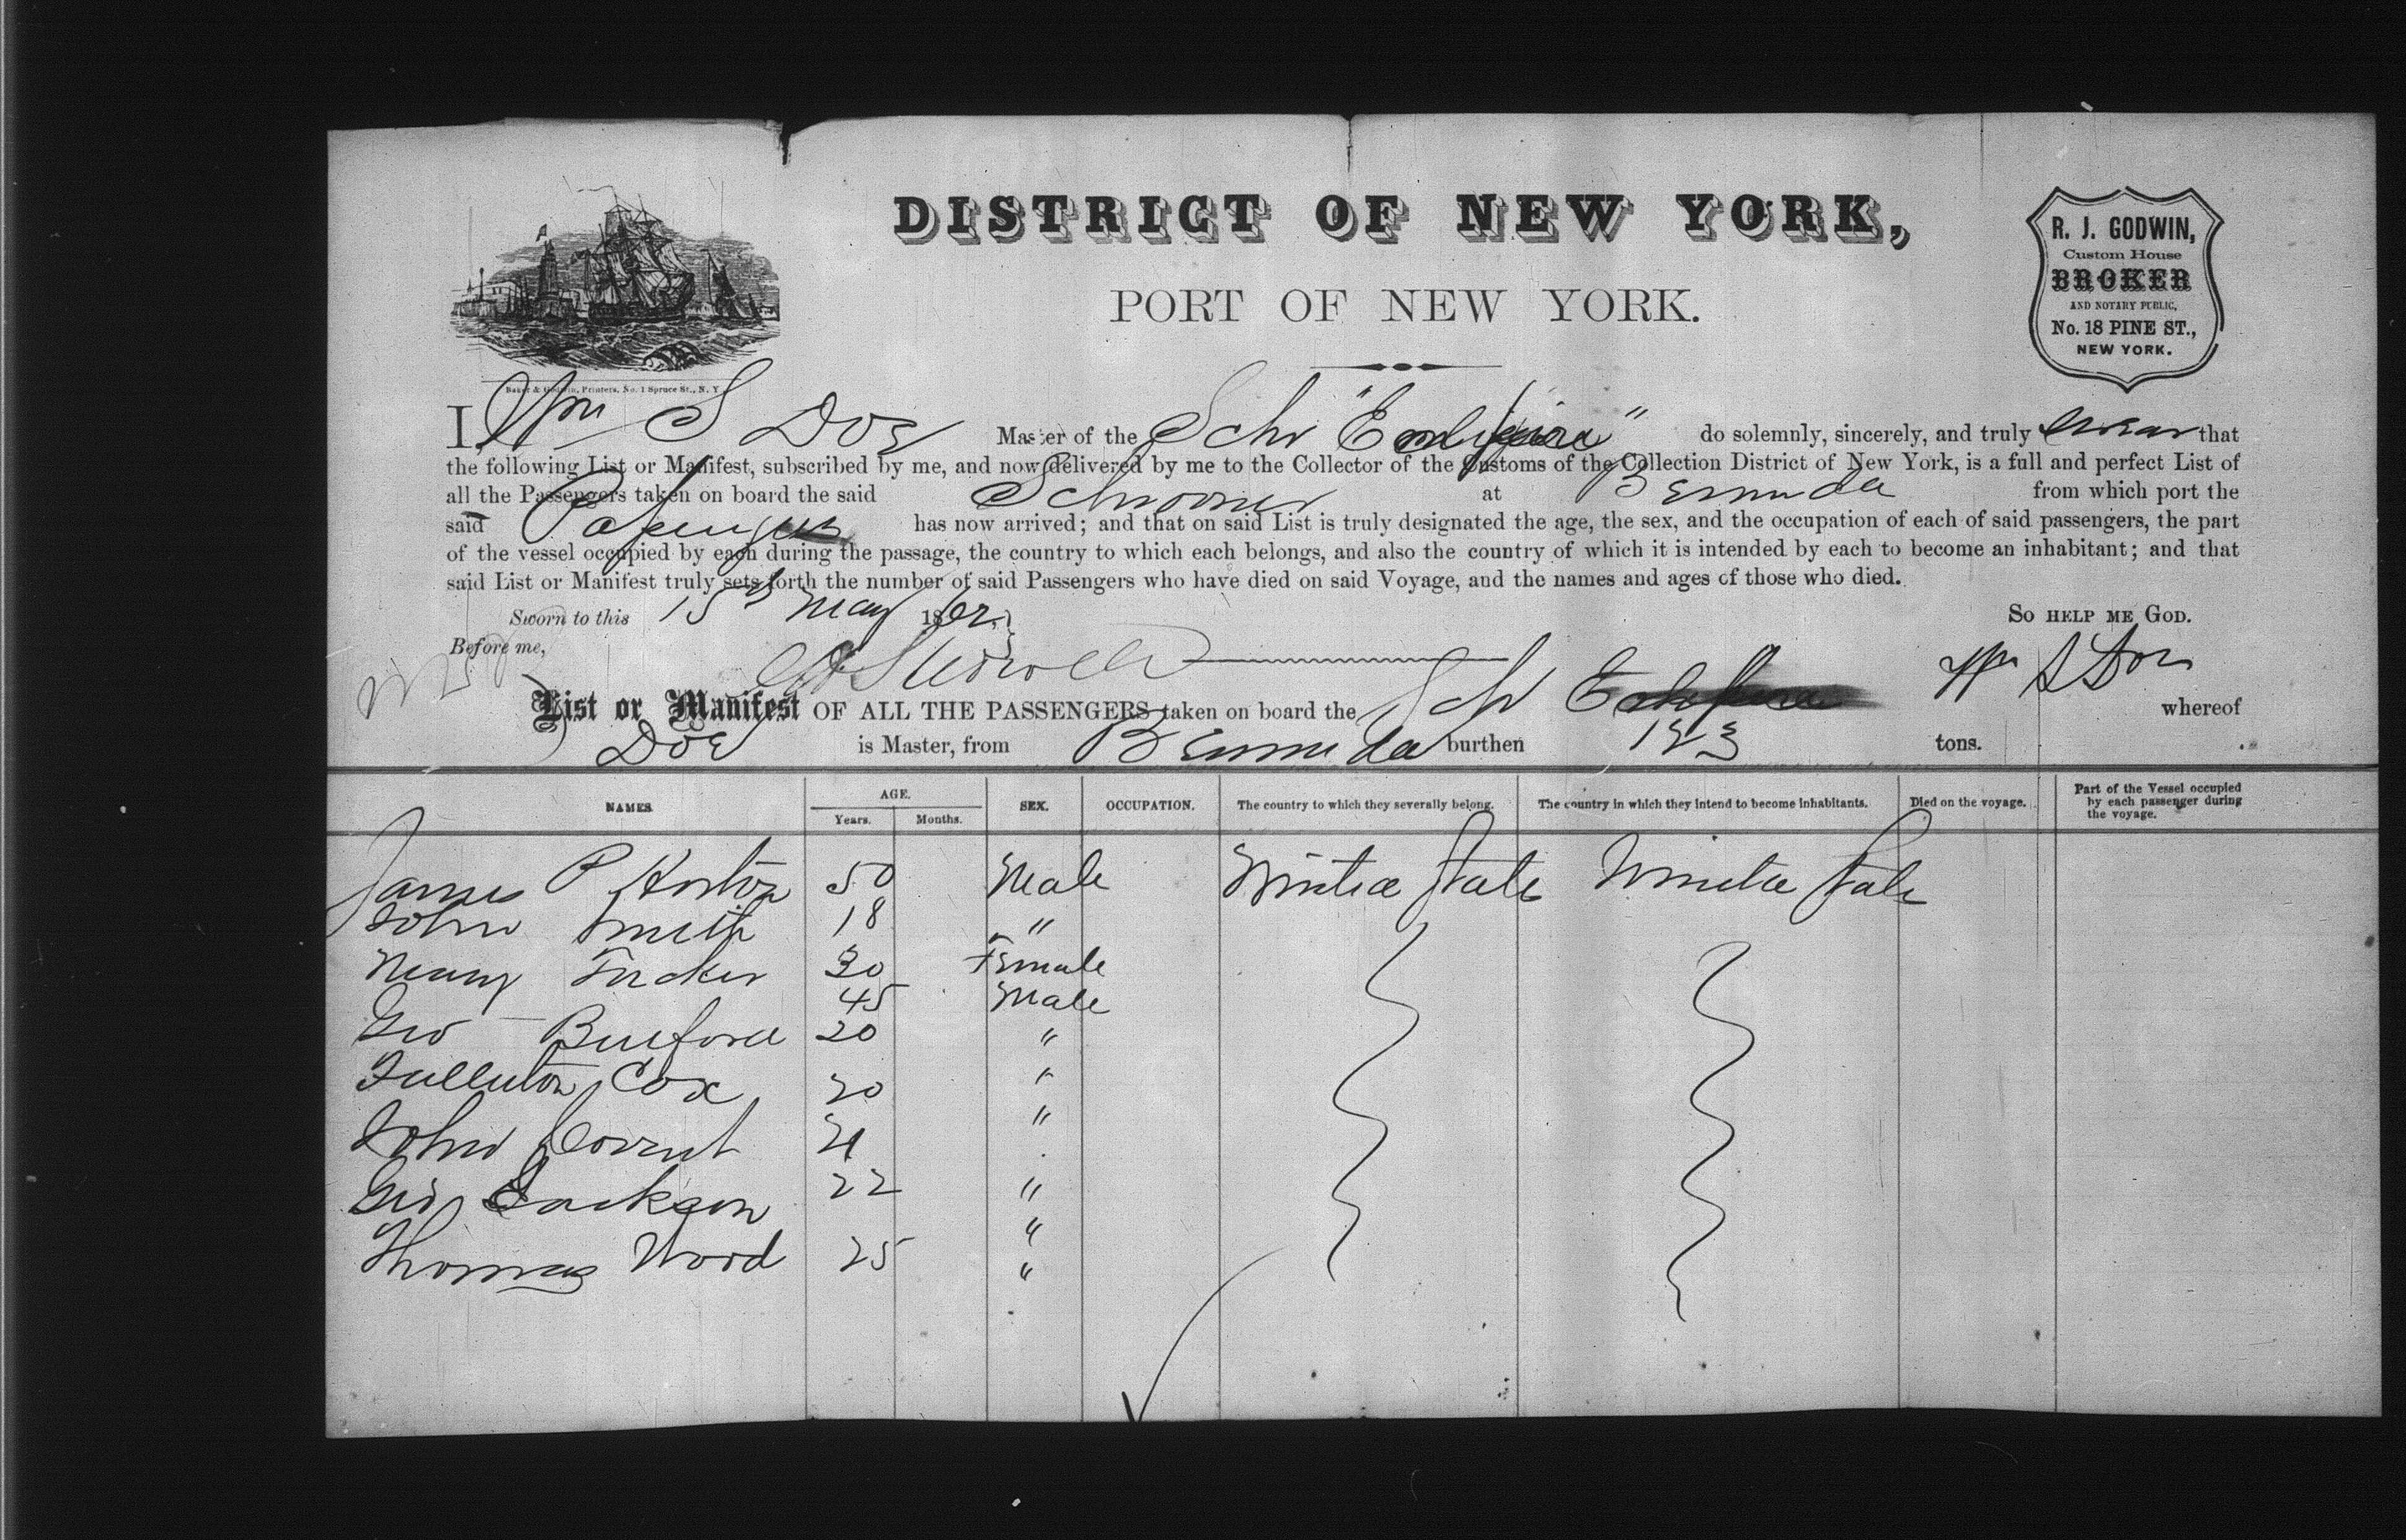 DISTRICT OF NEW YORK,
PORT OF NEW YORK.
R. J. GODWIN,
Custom House
BROKER
AND NOTARY PUBLIC,
No. 18 PINE ST.,
NEW YORK.
Baker & Godwin, Printers, No. 1 Spruce St., N. Y
I, Wm S Doe Master of the Schr do solemnly, sincerely, and truly swear that
the following List or Manifest, subscribed by me, and now delivered by me to the Collector of the Customs of the Collection District of New York, is a full and perfect List of
all the Passengers taken on board the said Schooner at Bermuda from which port the
said has now arrived; and that on said List is truly designated the age, the sex, and the occupation of each of said passengers, the part
of the vessel occupied by each during the passage, the country to which each belongs, and also the country of which it is intended by each to become an inhabitant; and that
said List or Manifest truly sets forth the number of said Passengers who have died on said Voyage, and the names and ages of those who died.
Sworn to this 15th May 1862 So HELP ME GOD.
Before me,
Wm S Doe
List or Manifest OF ALL THE PASSENGERS taken on board the Schr whereof
Doe is Master, from Bermuda burthen 123 tons.
NAMES AGE. Years. Months. SEX. OCCUPATION. The country to which they severally belong. The country in which they intend to become inhabitants. Died on the voyage. Part of the Vessel occupied by each passenger during the voyage.
James P Horton 50 Male United State United State
John Smith 18 "
Tucker 30 Female
45 Male
Geo Buford 20 "
Fullerton Cox 20 "
John 21 "
Geo Jackson 22 "
"
Thomas Wood 25 "